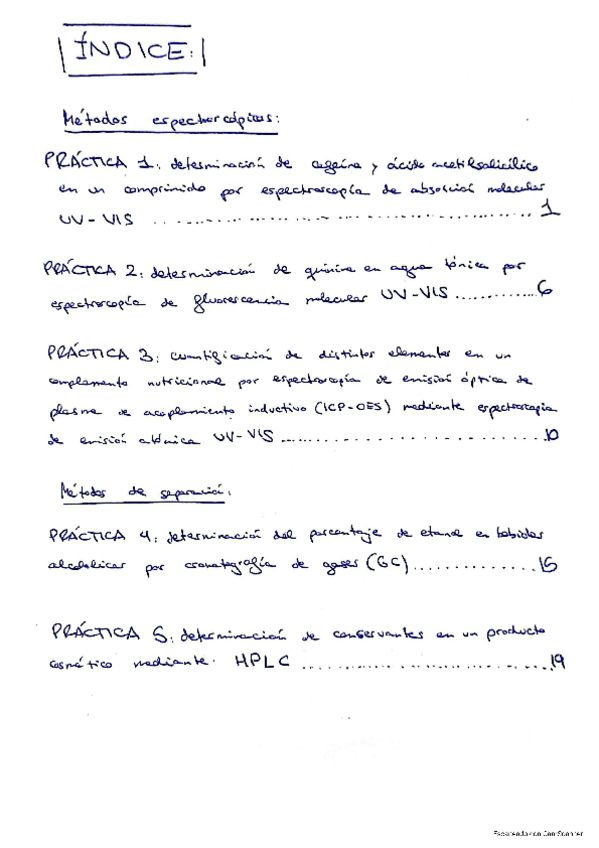 ÍNDICE:
Métodos espectorcópicos:
PRÁCTICA 1: determinación de cafeína y ácido acetilsalicílico
en un comprimido por espectroscopía de absorción molecular
UV-VIS ............................................. 1
PRÁCTICA 2: determinación de quinina en agua tónica por
espectroscopía de fluorescencia molecular UV-VIS ............ 6
PRÁCTICA 3: cuantificación de distintos elementos en un
complemento nutricional por espectroscopía de emisión óptica de
plasma de acoplamiento inductivo (ICP-OES) mediante espectroscopia
de emisión atómica UV-VIS ............................. 10
Métodos de separación:
PRÁCTICA 4: determinación del porcentaje de etanol en bebidas
alcohólicas por cromatografía de gases (GC) .............. 15
PRÁCTICA 5: determinación de conservantes en un producto
cosmético mediante HPLC ............................. 19
Escaneado con CamScanner